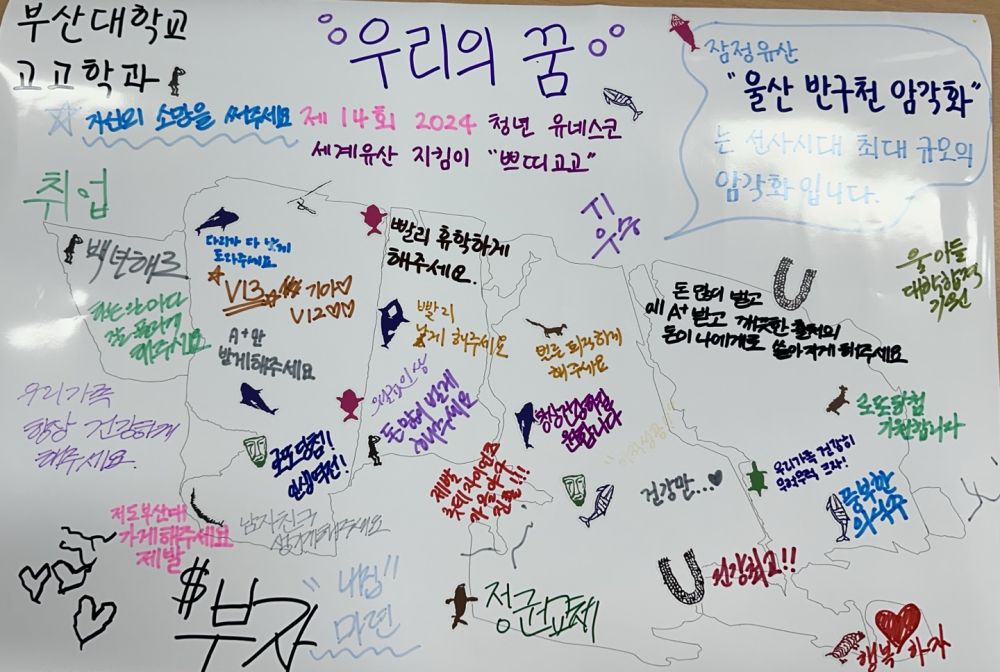 부산대학교
고고학과
우리의 꿈
자신의 소망을 써주세요
제 14회 2024 청년 유네스코
세계유산 지킴이 "쁘띠고고"
잠정유산
"울산 반구천 암각화"
는 선사시대 최대 규모의
암각화 입니다.
취업
백년해로
해주세요
우리가족
항상 건강하게
해주세요.
다 낫게
도와주세요
V13 기아♡
V12♡♡
A+만
받게해주세요
빨리 휴학하게
해주세요.
빨리
낫게 해주세요
돈 많이 벌게
해주세요
로또 당첨!!
인생역전!
저도부산대
가게해주세요
제발
남자친구
생기게해주세요
$부자
"내집"
마련
지우
빠른 퇴직하게
해주세요
항상건강하길
원합니다
제발
롯데자이언츠
가을야구
진출!!!
정권교체
돈 많이 벌고
올 A+ 받고 깨끗한 출처의
돈이 나에게로 쏟아지게 해주세요
울 아들
대학합격
기원
로또당첨
기원합니다
건강만...♥
우리가족 건강히
무럭무럭 크자!
풍부한
의식주
건강최고!!
행복하자